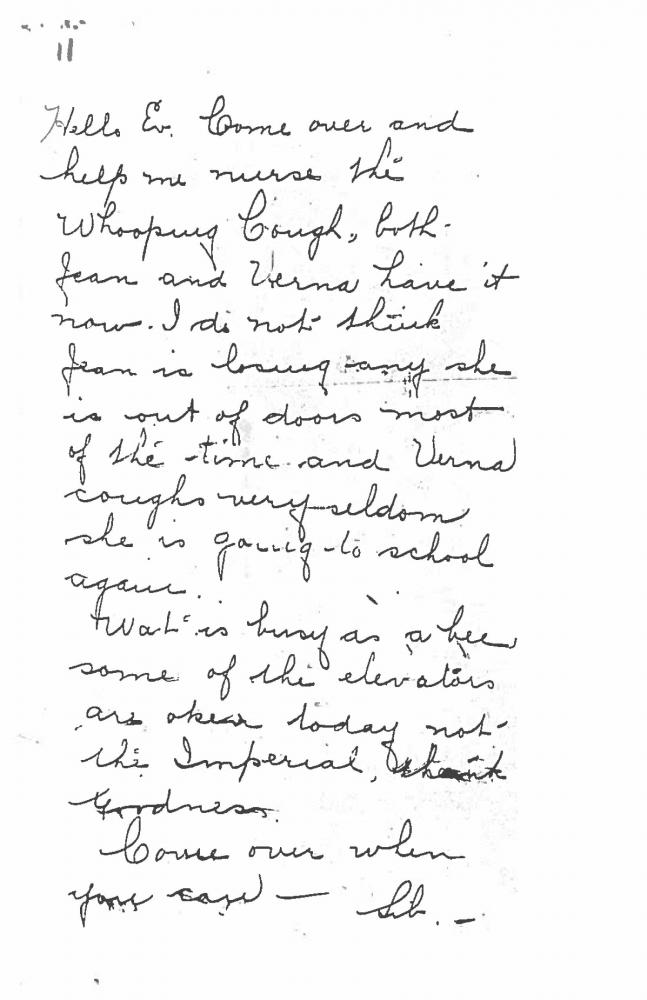 11
Hello Ev. Come over and
help me nurse the
Whooping Cough, both
Jean and Verna have it
now. I do not think
Jean is losing any she
is out of doors most
of the time and Verna
coughs very seldom
she is going to school
again.
Wat is busy as a bee
some of the elevators
are open today not
the Imperial, thank
Goodness.
Come over when
you can —